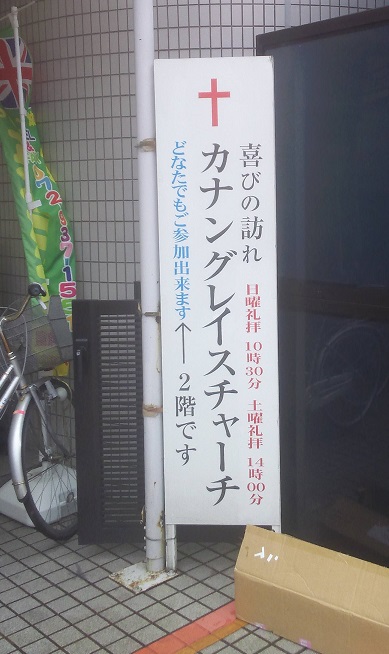 喜びの訪れ
日曜礼拝 10時30分 土曜礼拝 14時00分
カナングレイスチャーチ
どなたでもご参加出来ます←2階です